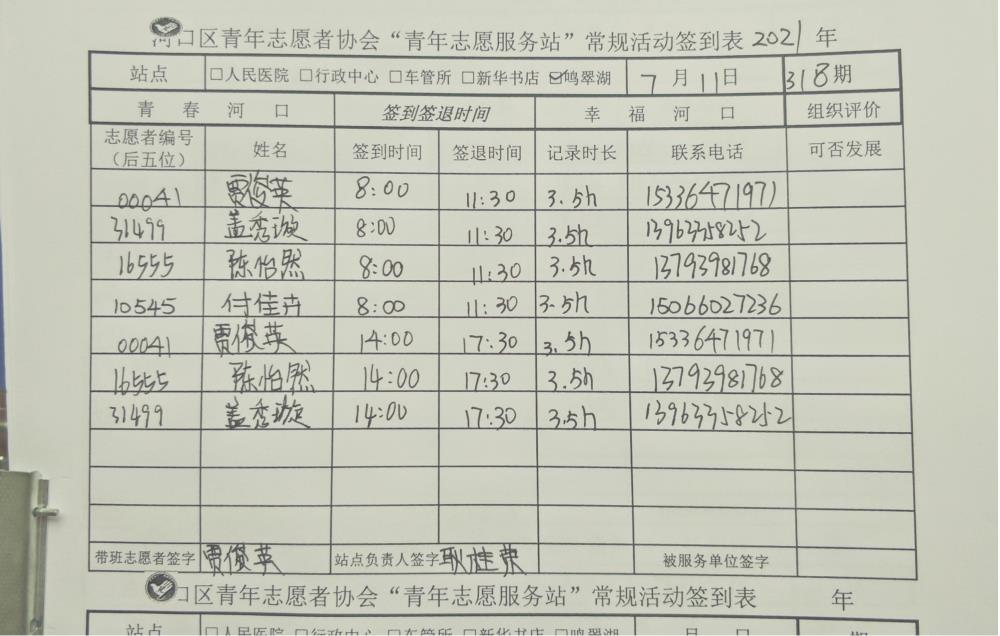 河口区青年志愿者协会“青年志愿服务站”常规活动签到表 2021 年
站点 □人民医院 □行政中心 □车管所 □新华书店 ☑鸣翠湖 7 月 11 日 318期
青春河口 签到签退时间 幸福河口 组织评价
志愿者编号（后五位） 姓名 签到时间 签退时间 记录时长 联系电话 可否发展
00041 贾俊英 8:00 11:30 3.5h 15336471971
31499 盖秀璇 8:00 11:30 3.5h 13963358252
16555 陈怡然 8:00 11:30 3.5h 13793981768
10545 付佳卉 8:00 11:30 3.5h 15066027236
00041 贾俊英 14:00 17:30 3.5h 15336471971
16555 陈怡然 14:00 17:30 3.5h 13793981768
31499 盖秀璇 14:00 17:30 3.5h 13963358252
带班志愿者签字 贾俊英 站点负责人签字 耿桂荣 被服务单位签字
口区青年志愿者协会“青年志愿服务站”常规活动签到表 年
站点 □人民医院 □行政中心 □车管所 □新华书店 □鸣翠湖 月 日 期